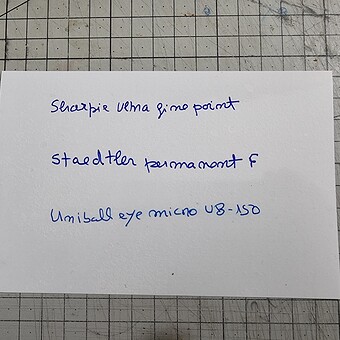 Sharpie ultra fine point
Staedtler permanent F
Uniball eye micro UB-150